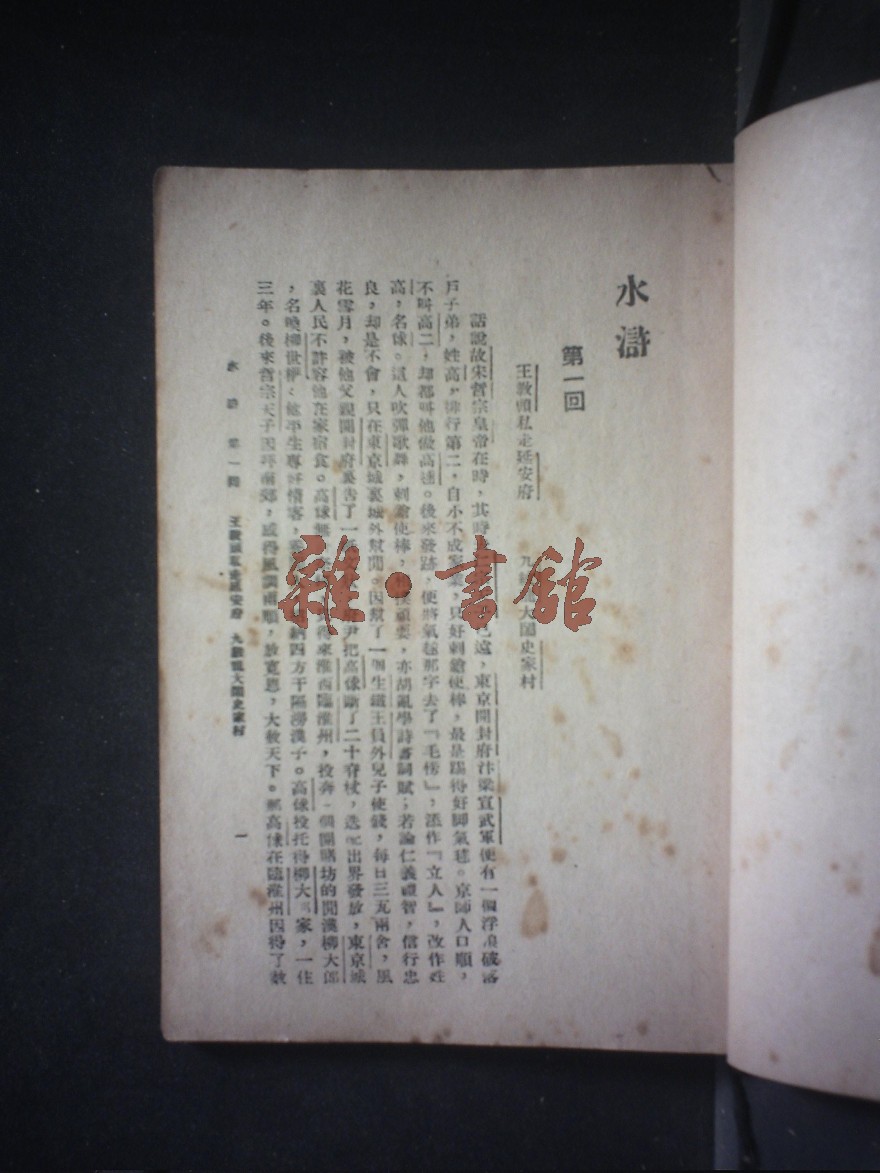 水滸
第一回
王教頭私走延安府 九 大鬧史家村
話說故宋哲宗皇帝在時，其時 已遠，東京開封府汴梁宣武軍便有一個浮浪破落
戶子弟，姓高，排行第二，自小不成家業，只好刺鎗使棒，最是踢得好脚氣毬。京師人口順，
不叫高二，却都叫他做高毬。後來發跡，便將氣毬那字去了『毛傍』，添作『立人』，改作姓
高，名俅。這人吹彈歌舞，刺鎗使棒，相撲頑耍，亦胡亂學詩書詞賦；若論仁義禮智，信行忠
良，却是不會，只在東京城裏城外幫閒。因幫了一個生鐵王員外兒子使錢，每日三瓦兩舍，風
花雪月，被他父親開封府裏告了一 尹把高俅斷了二十脊杖，迭配出界發放，東京城
裏人民不許容他在家宿食。高俅無 來淮西臨淮州，投奔一個開賭坊的閒漢柳大郎
，名喚柳世權。他平生專好惜客， 納四方干隔澇漢子。高俅投托得柳大 家，一住
三年。後來哲宗天子因拜南郊，感得風調雨順，放寬恩，大赦天下。那高俅在臨淮州因得了赦
水滸 第一回 王教頭私走延安府 九紋龍大鬧史家村
一
雜·書館